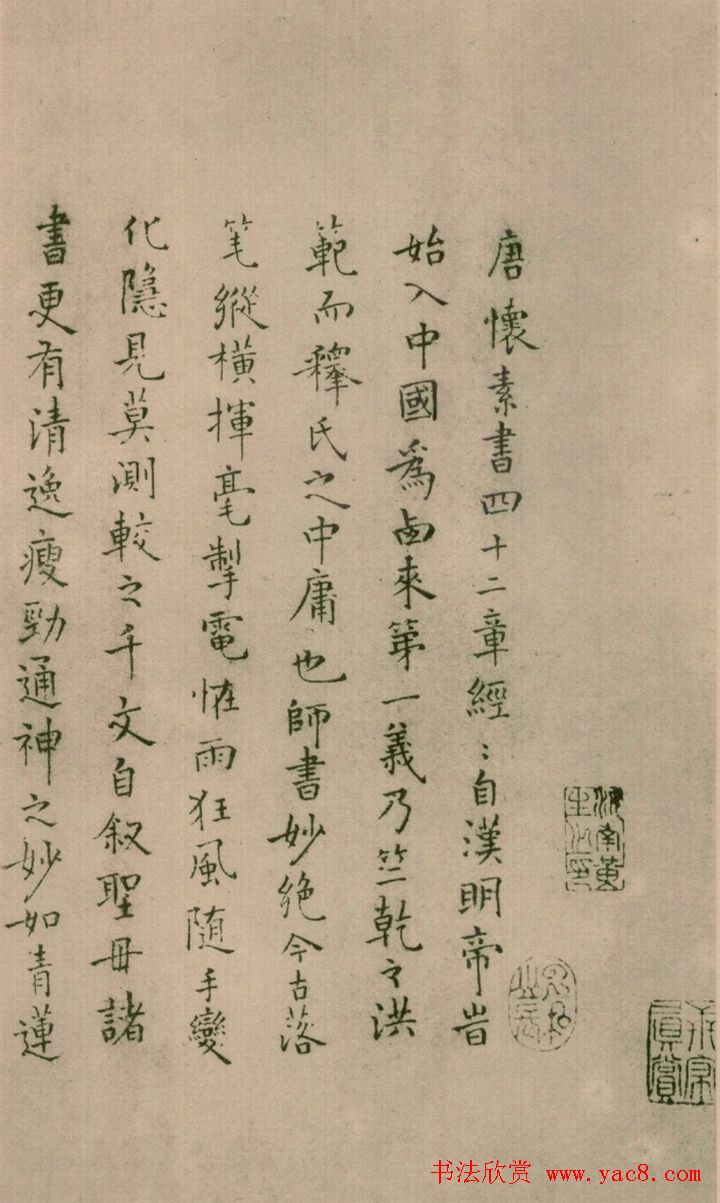 唐懷素書四十二章經〻自漢明帝旹
始入中國爲卥來第一義乃竺乾之洪
範而釋氏之中庸也師書妙絶今古落
笔縱橫揮毫掣電恠雨狂風随手變
化隱見莫測較之千文自叙聖毋諸
書更有清逸瘦勁通神之妙如青蓮
书法欣赏 www.yac8.com